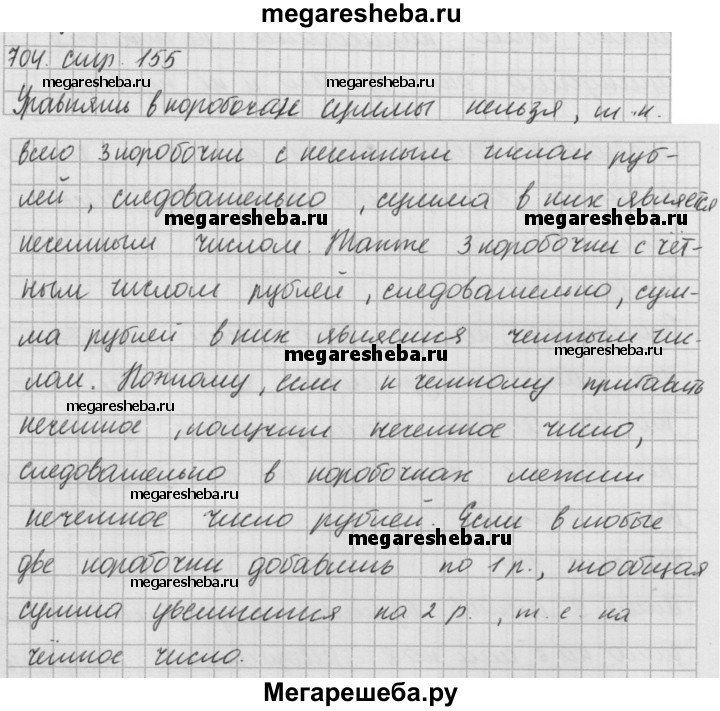 megaresheba.ru
704. стр. 155
megaresheba.ru megaresheba.ru
Уравнять в коробочках суммы нельзя, т.к.
всего 3 коробочки с нечетным числом руб-
лей, следовательно, сумма в них является
megaresheba.ru megaresheba.ru
нечетным числом. Также 3 коробочки с чёт-
ным числом рублей, следовательно, сум-
ма рублей в них является четным чис-
megaresheba.ru megaresheba.ru
лом. Поэтому, если к четному прибавить
megaresheba.ru
нечетное, получим нечетное число,
следовательно в коробочках лежит
megaresheba.ru
нечетное число рублей. Если в любые
megaresheba.ru
две коробочки добавить по 1 р., то общая
megaresheba.ru
сумма увеличится на 2 р., т.е. на
чётное число.
Мегарешеба.ру